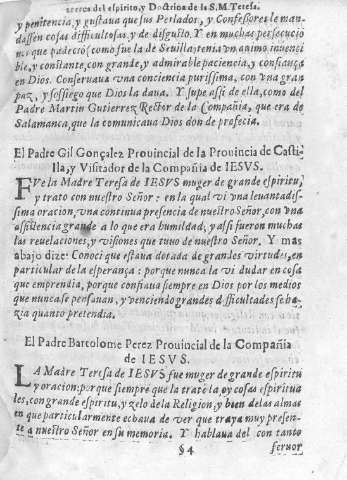 acerca del espiritu, y Doctrina de la S. M. Teresa.
y penitencia, y gustaua que sus Perlados, y Confessores le man-
dassen cosas dificultosas, y de disgusto. Y en muchas persecucio
nes que padecio, como fue la de Seuilla, tenia vn animo inuenci
ble, y constante, con grande, y admirable paciencia, y confiança
en Dios. Conseruaua vna conciencia purissima, con vna gran
paz, y sossiego que Dios la daua. Y supe assi de ella, como del
Padre Martin Gutierrez Retor de la Compañia, que era de
Salamanca, que la comunicaua Dios don de profecia.
El Padre Gil Gonçalez Prouincial de la Prouincia de Casti-
lla, y Visitador de la Compañia de IESVS.
FVe la Madre Teresa de IESVS muger de grande espiritu,
y trato con nuestro Señor: en la qual vi vna leuantadis-
sima oracion, vna continua presencia de nuestro Señor, con vna
assistencia grande a lo que era humildad, y assi fueron muchas
las reuelaciones, y visiones que tuuo de nuestro Señor. Y mas
abajo dize: Conoci que estaua dotada de grandes virtudes, en
particular de la esperança: porque nunca la vi dudar en cosa
que emprendia, porque confiaua siempre en Dios por los medios
que nunca se pensauan, y venciendo grandes dificultades se ha-
zia quanto pretendia.
El Padre Bartolome Perez Prouincial de la Compañia
de IESVS.
LA Madre Teresa de IESVS fue muger de grande espiritu
y oracion: porque siempre que la trate la oy cosas espiritua
les, con grande espiritu, y zelo de la Religion, y bien de las almas
en que particularmente echaua de ver que traya muy presen-
te a nuestro Señor en su memoria. Y hablaua del con tanto
§ 4 feruor